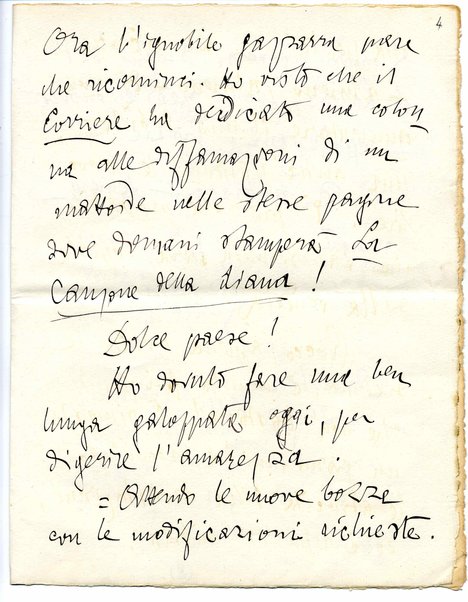 4
Ora l'ignobile gazzarra pare
che ricominci. Ho visto che il
Corriere ha dedicato una colon
na alle diffamazioni di un
mattoide nelle stesse pagine
dove domani stamperà La
Canzone della Diana!
Dolce paese!
Ho dovuto fare una ben
lunga galoppata oggi, per
digerire l'amarezza.
= Attendo le nuove bozze
con le modificazioni richieste.